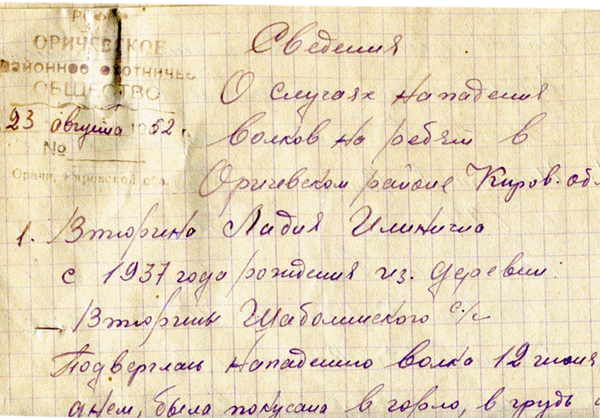 РСФСР
ОРИЧЕВСКОЕ
районное охотничье
ОБЩЕСТВО
23 августа 1952 г.
№
Оричи, Кировской обл.
Сведения
О случаях нападения
волков на ребят в
Оричевском районе Киров. об
1. Вторина Лидия Илинична
с 1937 года рождения из деревни
Вторины Шаболинского с/с
Подверглась нападению волка 12 июня
днем, была покусана в горло, в грудь